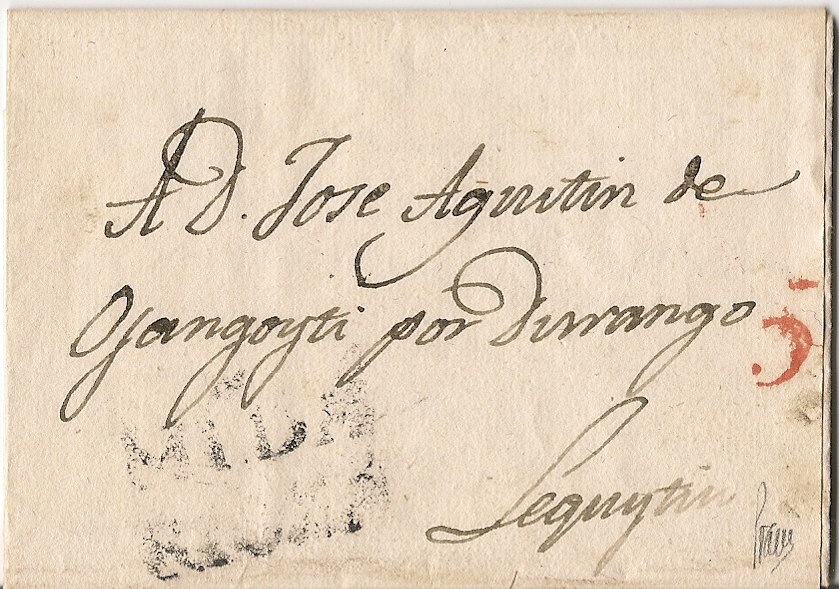 A D. Jose Agustin de
Ojangoyti por Durango
5
Lequeytio